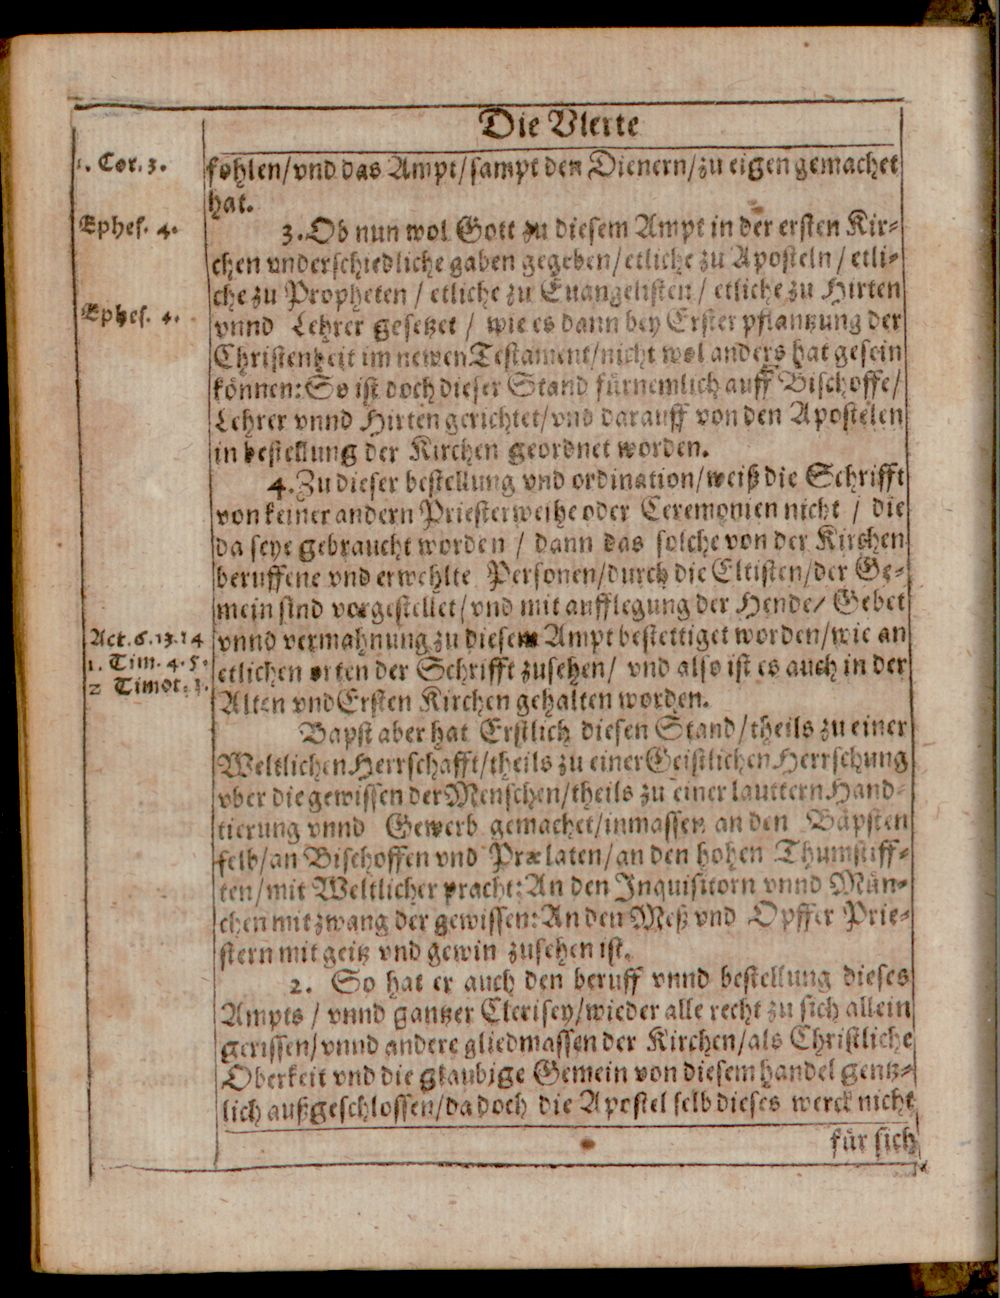 Die Vierte
1. Cor. 3.
fohlen/vnd das Ampt/sampt den Dienern/zu eigen gemachet
hat.
Ephes. 4.
3. Ob nun wol Gott zu diesem Ampt in der ersten Kir-
chen vnderschiedliche gaben gegeben/etliche zu Aposteln/etli-
che zu Propheten/etliche zu Euangelisten/etliche zu Hirten
Ephes. 4.
vnnd Lehrer gesetzet/wie es dann bey Erster pflantzung der
Christenheit im newen Testament/nicht wol anders hat gesein
können: So ist doch dieser Stand fürnemlich auff Bischoffe/
Lehrer vnnd Hirten gerichtet/vnd darauff von den Apostelen
in bestellung der Kirchen geordnet worden.
4. Zu dieser bestellung vnd ordination/weiß die Schrifft
von keiner andern Priesterweihe oder Ceremonien nicht/die
da seye gebraucht worden/dann das solche von der Kirchen
beruffene vnd erwehlte Personen/durch die Eltisten/der Ge-
mein sind vorgestellet/vnd mit aufflegung der Hende/Gebet
Act. 6. 13. 14
vnnd vermahnung zu diesem Ampt bestettiget worden/wie an
1. Tim. 4. 5.
etlichen orten der Schrifft zusehen/vnd also ist es auch in der
2 Timot. 1.
Alten vnd Ersten Kirchen gehalten worden.
Bapst aber hat Erstlich diesen Stand/theils zu einer
Weltlichen Herrschafft/theils zu einer Geistlichen Herrschung
vber die gewissen der Menschen/theils zu einer lauttern Hand-
tierung vnnd Gewerb gemachet/inmassen an den Bäpsten
selb/an Bischoffen vnd Prælaten/an den hohen Thumstiff-
ten/mit Weltlicher pracht: An den Inquisitorn vnnd Mün-
chen mit zwang der gewissen: An den Meß vnd Opffer Prie-
stern mit geitz vnd gewin zusehen ist.
2. So hat er auch den beruff vnnd bestellung dieses
Ampts/vnnd gantzer Clerisey/wieder alle recht zu sich allein
gerissen/vnnd andere gliedmassen der Kirchen/als Christliche
Oberkeit vnd die glaubige Gemein von diesem handel gentz-
lich außgeschlossen/da doch die Apostel selb dieses werck nicht
für sich